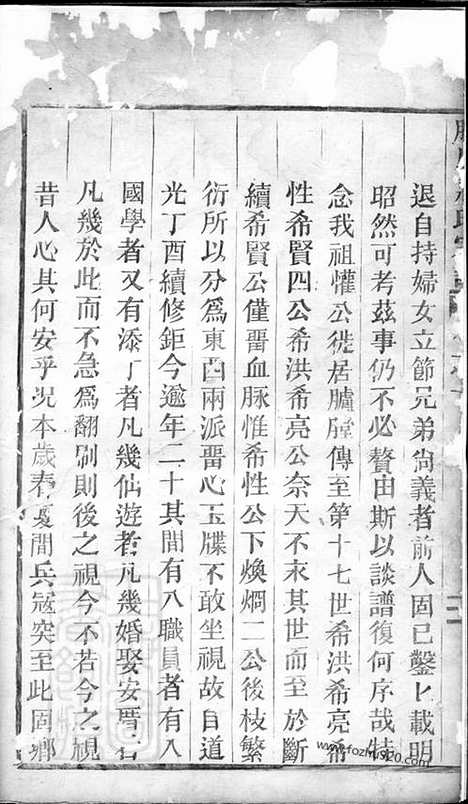 退自持婦女立節兄弟尚義者前人固已鑿匕載明
昭然可考茲事仍不必贅由斯以談譜復何序哉特
念我祖懽公徙居臚膛傳至第十七世希洪希亮希
性希賢四公希洪希亮公奈天不永其世而至於斷
續希賢公僅畱血脉惟希性公下煥烱二公後枝繁
衍所以分爲東西兩派畱心玉牒不敢坐視故自道
光丁酉續修鉅今逾年二十其間有入職員者有入
國學者又有添丁者凡幾仙遊者凡幾婚娶安厝者
凡幾於此而不急爲翻刷則後之視今不若今之視
昔人心其何安乎况本歲春夏間兵寇突至此固鄉
三
www.fozhu920.com